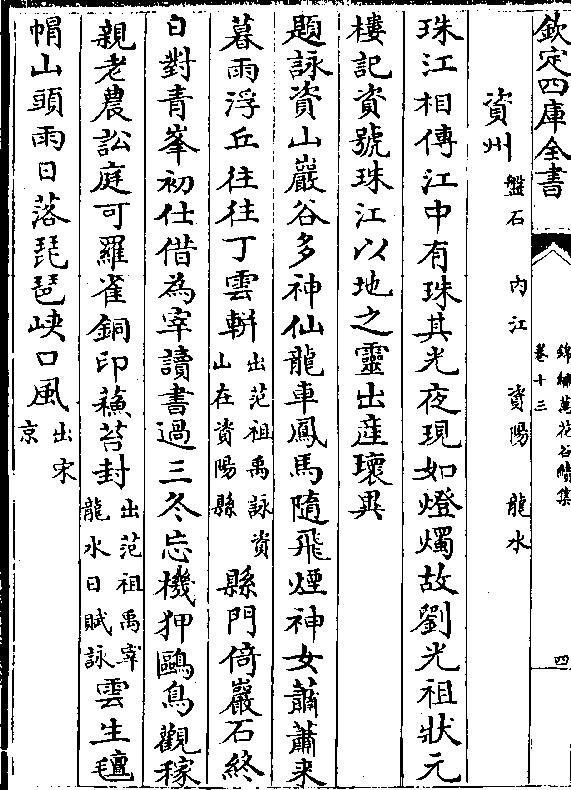 欽定四庫全書
錦繡萬花谷續集
卷十三
四
資州 盤石 內江 資陽 龍水
珠江相傳江中有珠其光夜現如燈燭故劉光祖狀元
樓記資號珠江以地之靈出産瓌異
題詠資山巖谷多神仙龍車鳳馬隨飛煙神女蕭蕭来
暮雨浮丘往往丁雲軿出范祖禹詠資山在資陽縣 縣門倚巖石終
日對青峯初仕借為宰讀書過三冬忘機狎鷗鳥觀稼
親老農訟庭可羅雀銅印蘓苔封出范祖禹宰龍水日賦詠雲生氊
帽山頭雨日落琵琶峽口風出宋京